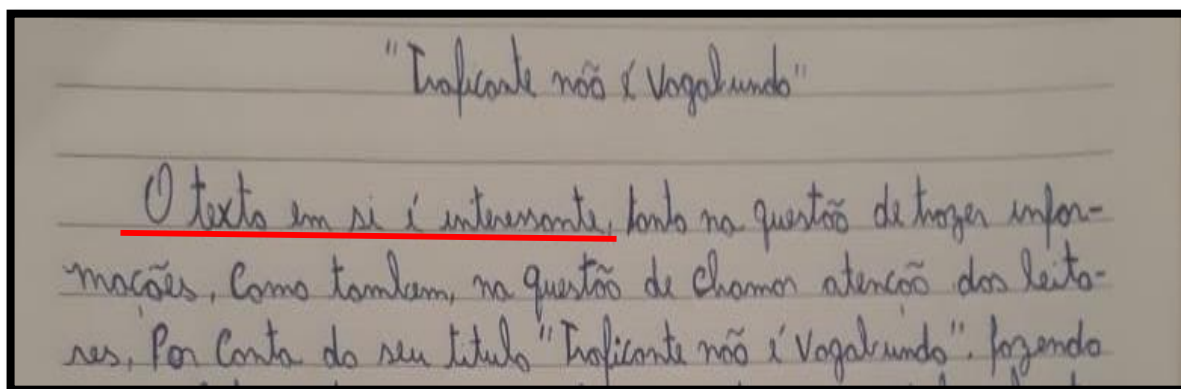 "Traficante não é Vagabundo"
O texto em si é interessante, tanto na questão de trazer infor-
mações, Como tambem, na questão de Chamar atenção dos leito-
res, Por Conta do seu titulo "Traficante não é Vagabundo". fazendo